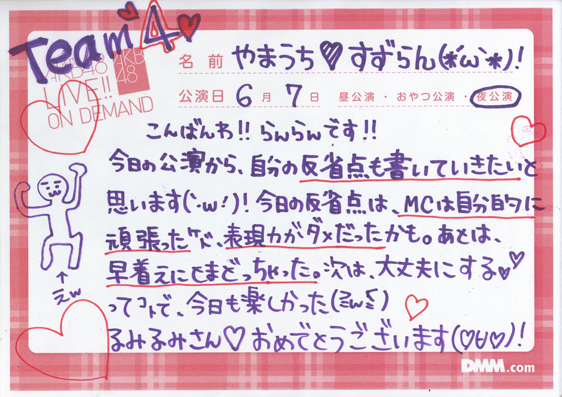 Team 4
AKB48
LIVE!!
ON DEMAND
AKB
48
名前 やまうち♥すずらん(*'ω'*)!
公演日 6月 7日 昼公演・おやつ公演・夜公演
こんばんわ!! らんらんです!!
今日の公演から、自分の反省点も書いていきたいと
思います(`・ω・́)! 今日の反省点は、MCは自分的に
頑張ったケド、表現力がダメだったかも。あとは、
早着えにとまどっちゃった。次は、大丈夫にする♥♥
ってコトで、今日も楽しかった(≧ω≦)
るみるみさん♡おめでとうございます(♡∀♡)!
↑
えw
DMM.com